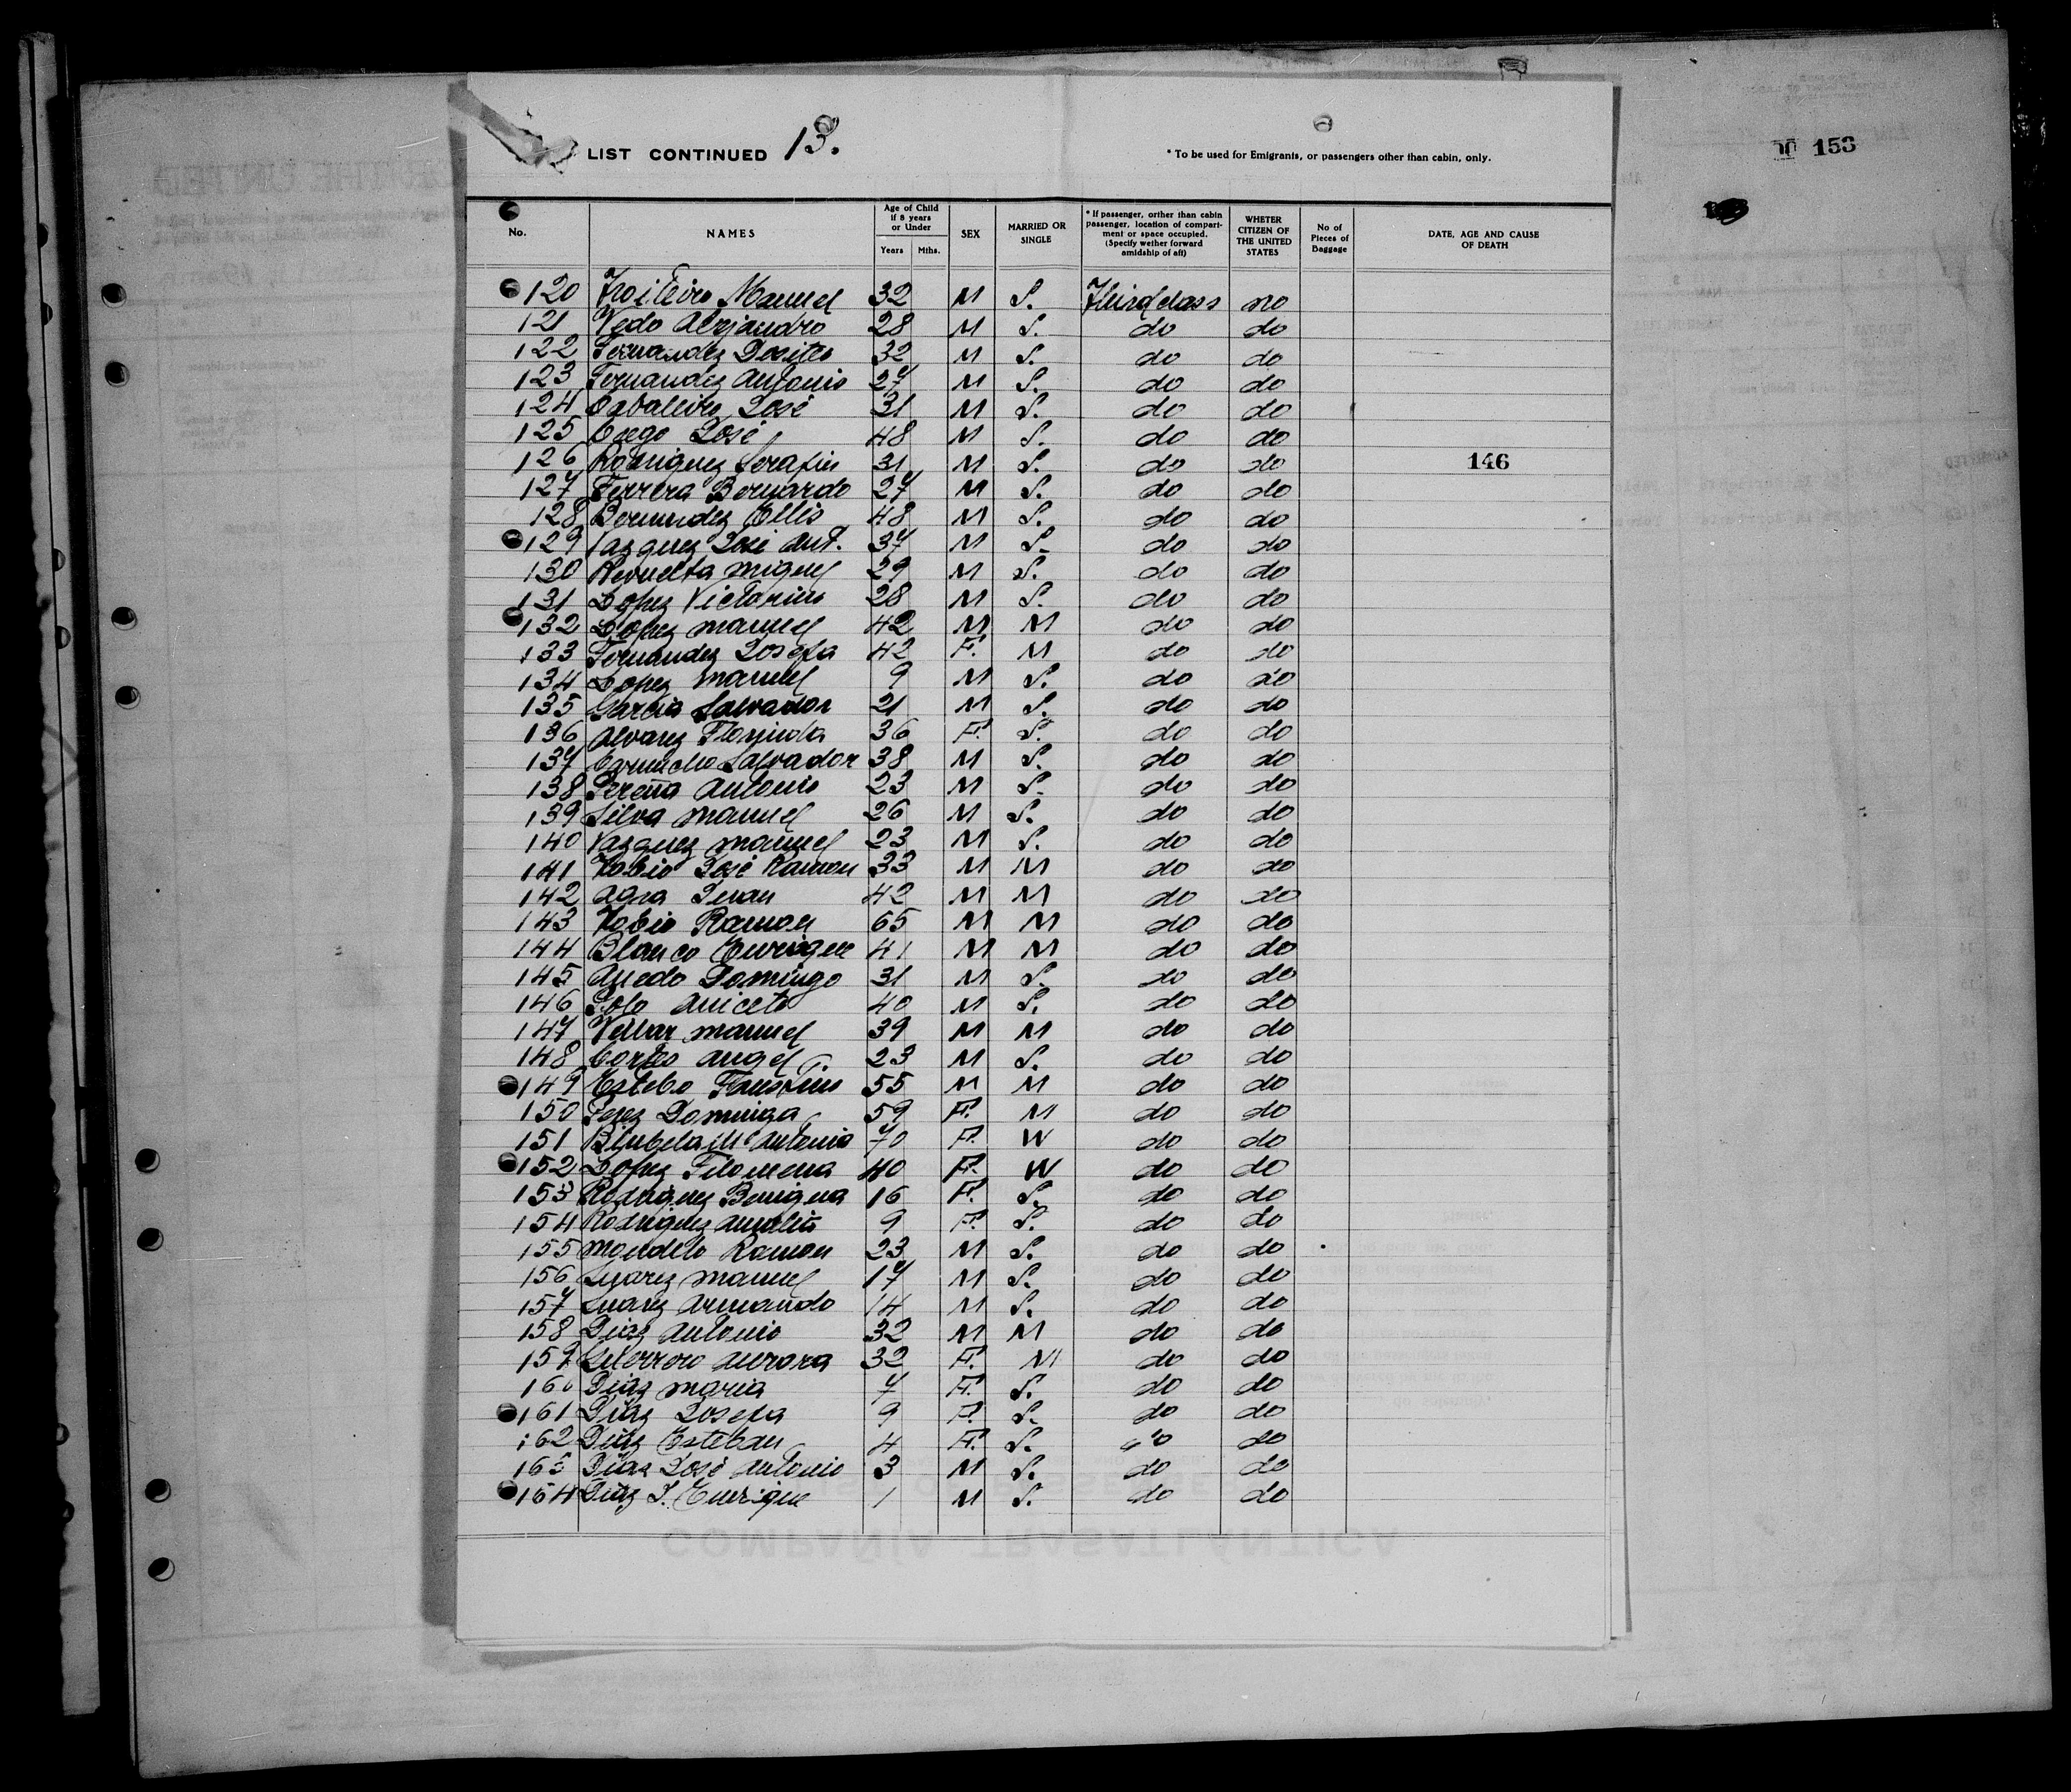 LIST CONTINUED 13.
* To be used for Emigrants, or passengers other than cabin, only.
153
No.
NAMES
Age of Child if 8 years or Under
Years Mths.
SEX
MARRIED OR SINGLE
* If passenger, orther than cabin passenger, location of compartiment or space occupied. (Specify wether forward amidship of aft)
WHETER CITIZEN OF THE UNITED STATES
No of Pieces of Baggage
DATE, AGE AND CAUSE OF DEATH
120 Manuel 32 M S. Third class no
121 Vedo Alejandro 28 M S. do do
122 Fernandez Dositeo 32 M S. do do
123 Fernandez Antonio 27 M S. do do
124 Cabaleiro José 31 M S. do do
125 José 48 M S. do do
126 Rodriguez Serafin 31 M S. do do 146
127 Ferrera Bernardo 27 M S. do do
128 Bermudez Ellis 48 M S. do do
129 Vazquez José Ant. 37 M S. do do
130 Revuelta Miguel 29 M S. do do
131 Lopez Victorino 28 M S. do do
132 Lopez Manuel 42 M M do do
133 Fernandez Josefa 42 F. M do do
134 Lopez Manuel 9 M S. do do
135 Garcia Salvador 21 M S. do do
136 Alvarez Florinda 36 F. S. do do
137 Camincho Salvador 38 M S. do do
138 Pereña Antonio 23 M S. do do
139 Silva Manuel 26 M S. do do
140 Vazquez Manuel 23 M S. do do
141 José Ramon 33 M M do do
142 Agra Juan 42 M M do do
143 Ramon 65 M M do do
144 Blanco Enrique 41 M M do do
145 Domingo 31 M S. do do
146 Polo Aniceto 40 M S. do do
147 Manuel 39 M M do do
148 Cortes Angel 23 M S. do do
149 Estebo Faustino 55 M M do do
150 Perez Dominga 59 F. M do do
151 Antonia 70 F. W do do
152 Lopez Filomena 40 F. W do do
153 Rodriguez Benigna 16 F. S. do do
154 Rodriguez Amalia 9 F. S. do do
155 Mondelo Ramon 23 M S. do do
156 Suarez Manuel 17 M S. do do
157 Suarez Armando 14 M S. do do
158 Diaz Antonio 32 M M do do
159 Aurora 32 F. M do do
160 Diaz Maria 7 F. S. do do
161 Diaz Josefa 9 F. S. do do
162 Diaz Esteban 4 F. S. do do
163 Diaz José Antonio 3 M S. do do
164 Diaz J. Enrique 1 M S. do do